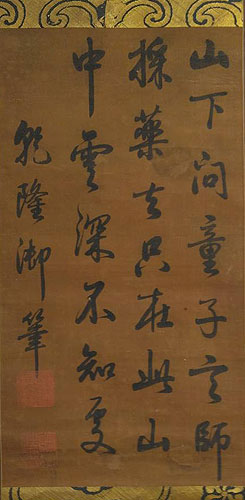 山下问童子言師
採藥去只在此山
中雲深不知處
乾隆御筆